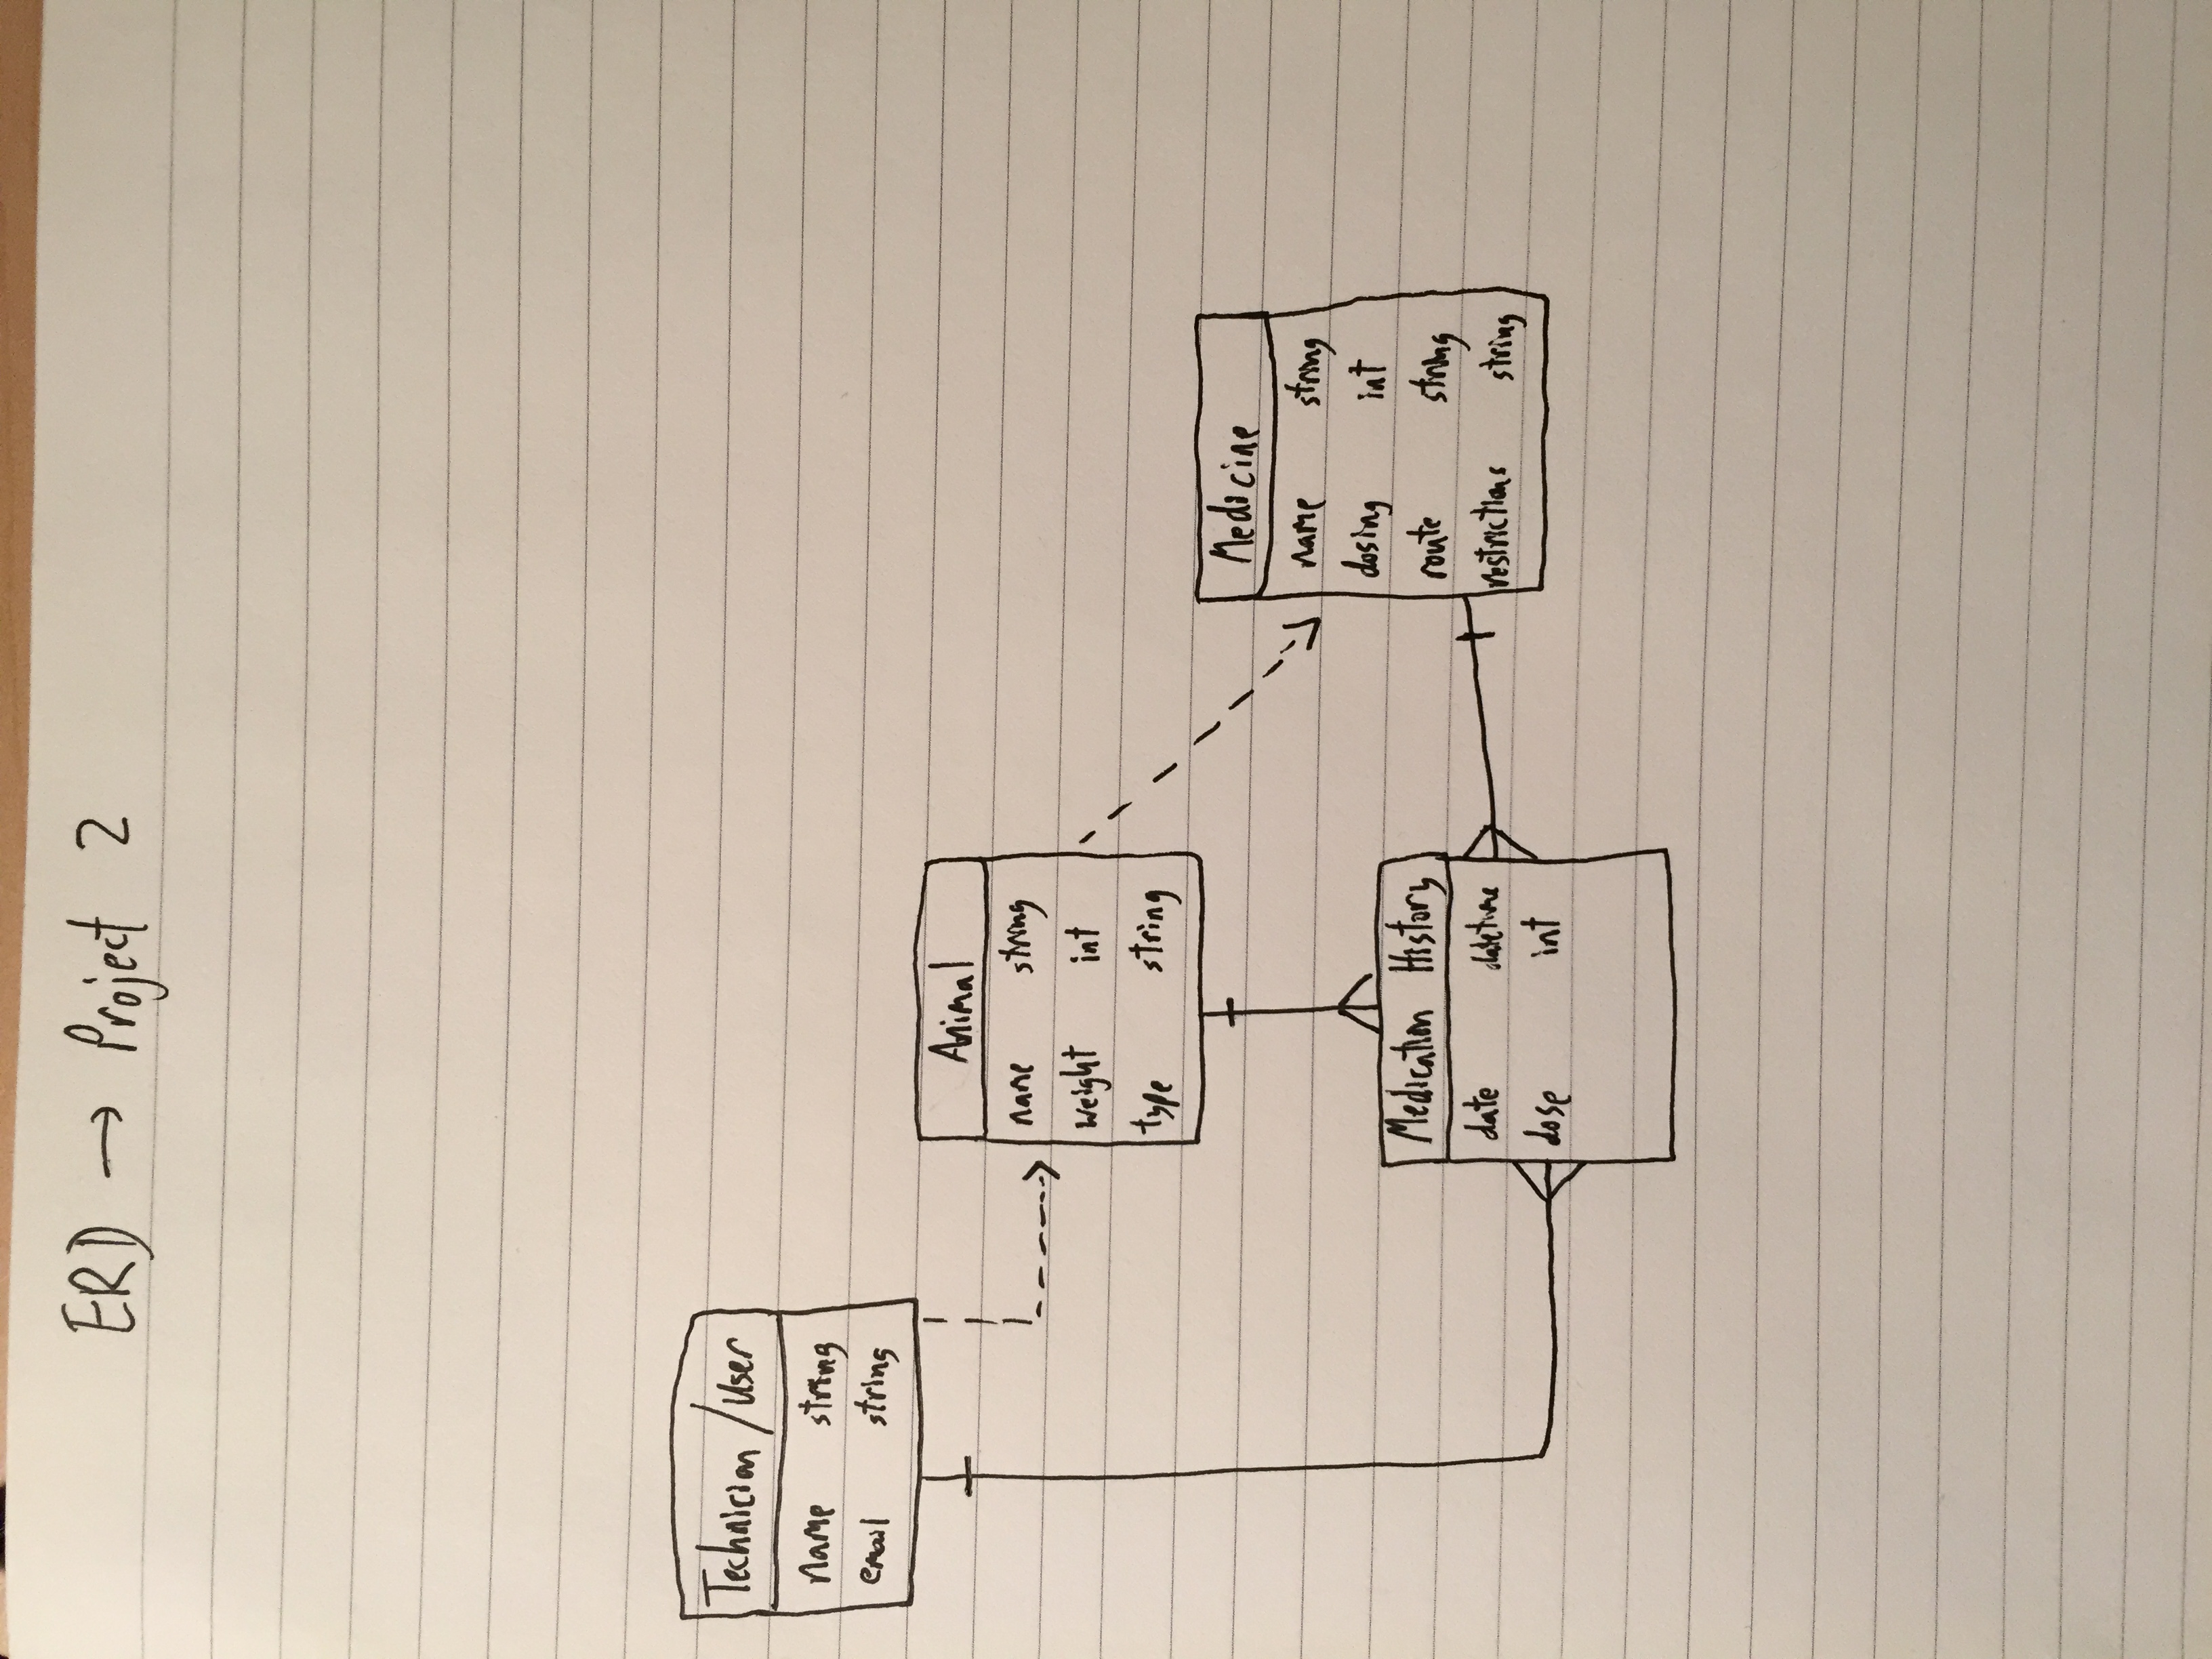 ERD → Project 2
Technician / User
name string
email string
Animal
name string
weight int
type string
Medicine
name string
dosing int
route string
restrictions string
Medication History
date datetime
dose int